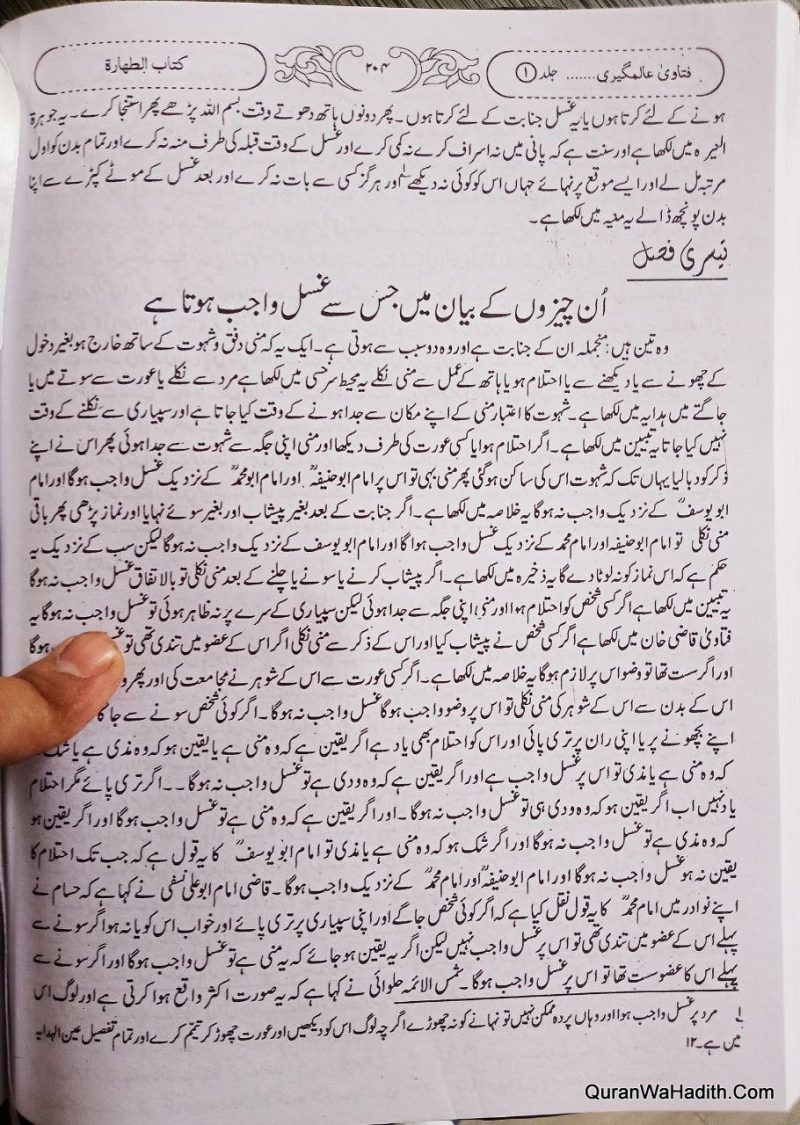 فتاویٰ عالمگیری ....... جلد ①
۲۰۴
کتاب الطهارة
ہونے کے لئے کرتا ہوں یا یہ غسل جنابت کے لئے کرتا ہوں۔ پھر دونوں ہاتھ دھوتے وقت بسم اللہ پڑھے پھر استنجا کرے۔ یہ جوہرۃ
النیرہ میں لکھا ہے اور سنت ہے کہ پانی میں نہ اسراف کرے نہ کمی کرے اور غسل کے وقت قبلہ کی طرف منہ نہ کرے اور تمام بدن کو اول
مرتبہ مل لے اور ایسے موقع پر نہائے جہاں اس کو کوئی نہ دیکھے اور ہرگز کسی سے بات نہ کرے اور بعد غسل کے موٹے کپڑے سے اپنا
بدن پونچھ ڈالے یہ منیہ میں لکھا ہے۔
تیسری فصل
اُن چیزوں کے بیان میں جس سے غسل واجب ہوتا ہے
وہ تین ہیں: منجملہ ان کے جنابت ہے اور وہ دو سبب سے ہوتی ہے۔ ایک یہ کہ منی دفق و شہوت کے ساتھ خارج ہو بغیر دخول
کے چھونے سے یا دیکھنے سے یا احتلام ہو یا ہاتھ کے عمل سے منی نکلے یہ محیط سرخسی میں لکھا ہے مرد سے نکلے یا عورت سے سوتے میں یا
جاگتے میں ہدایہ میں لکھا ہے۔ شہوت کا اعتبار منی کے اپنے مکان سے جدا ہونے کے وقت کیا جاتا ہے اور سپیاری سے نکلنے کے وقت
نہیں کیا جاتا یہ تبیین میں لکھا ہے۔ اگر احتلام ہوا یا کسی عورت کی طرف دیکھا اور منی اپنی جگہ سے شہوت سے جدا ہوئی پھر اس نے اپنے
ذکر کو دبا لیا یہاں تک کہ شہوت اس کی ساکن ہو گئی پھر منی بہی تو اس پر امام ابو حنیفہؒ اور امام ابو محمدؒ کے نزدیک غسل واجب ہوگا اور امام
ابو یوسفؒ کے نزدیک واجب نہ ہوگا یہ خلاصہ میں لکھا ہے۔ اگر جنابت کے بعد بغیر پیشاب اور بغیر سوئے نہایا اور نماز پڑھی پھر باقی
منی نکلی تو امام ابو حنیفہ اور امام محمد کے نزدیک غسل واجب ہوا گا اور امام ابو یوسف کے نزدیک واجب نہ ہوگا لیکن سب کے نزدیک یہ
حکم ہے کہ اس نماز کو نہ لوٹا دے گا یہ ذخیرہ میں لکھا ہے۔ اگر پیشاب کرنے یا سونے یا چلنے کے بعد منی نکلی تو بالاتفاق غسل واجب نہ ہوگا
یہ تبیین میں لکھا ہے اگر کسی شخص کو احتلام ہوا اور منی اپنی جگہ سے جدا ہوئی لیکن سپیاری کے سرے پر نہ ظاہر ہوئی تو غسل واجب نہ ہوگا یہ
فتاویٰ قاضی خان میں لکھا ہے اگر کسی شخص نے پیشاب کیا اور اس کے ذکر سے منی نکلی اگر اس کے عضو میں تندی تھی تو ہوگا
اور اگر سست تھا تو وضو اس پر لازم ہوگا یہ خلاصہ میں لکھا ہے۔ اگر کسی عورت سے اس کے شوہر نے مجامعت کی اور پھر
اس کے بدن سے اس کے شوہر کی منی نکلی تو اس پر وضو واجب ہوگا غسل واجب نہ ہوگا۔ اگر کوئی شخص سونے سے جاگا
اپنے بچھونے پر یا اپنی ران پر تری پائی اور اس کو احتلام بھی یاد ہے اگر یقین ہے کہ وہ منی ہے یا یقین ہو کہ وہ مذی ہے یا شک
کہ وہ منی ہے یا مذی تو اس پر غسل واجب ہے اور اگر یقین ہے کہ وہ ودی ہے تو غسل واجب نہ ہوگا۔۔ اگر تری پائے مگر احتلام
یاد نہیں اب اگر یقین ہو کہ وہ ودی ہی تو غسل واجب نہ ہوگا۔ اور اگر یقین ہے کہ وہ منی ہے تو غسل واجب ہوگا اور اگر یقین ہو
کہ وہ مذی ہے تو غسل واجب نہ ہوگا اور اگر شک ہو کہ وہ منی ہے یا مذی تو امام ابو یوسفؒ کا یہ قول ہے کہ جب تک احتلام کا
یقین نہ ہو غسل واجب نہ ہوگا اور امام ابو حنیفہؒ اور امام محمدؒ کے نزدیک واجب ہوگا۔ قاضی امام ابو علی نسفی نے کہا ہے کہ حسام نے
اپنے نوادر میں امام محمدؒ کا یہ قول نقل کیا ہے کہ اگر کوئی شخص جاگے اور اپنی سپیاری پر تری پائے اور خواب اس کو یاد نہ ہوا گر سونے سے
پہلے اس کے عضو میں تندی تھی تو اس پر غسل واجب نہیں لیکن اگر یہ یقین ہو جائے کہ یہ منی ہے تو غسل واجب ہوگا اور اگر سونے سے
پہلے اس کا عضو سست تھا تو اس پر غسل واجب ہوگا۔ شمس الائمہ حلوائی نے کہا ہے کہ یہ صورت اکثر واقع ہوا کرتی ہے اور لوگ اس
لے مرد پر غسل واجب ہوا اور وہاں پردہ ممکن نہیں تو نہانے کو نہ چھوڑے اگرچہ لوگ اس کو دیکھیں اور عورت چھوڑ کر تیمم کرے اور تمام تفصیل عین الہدایہ
میں ہے۔ ۱۲
QuranWaHadith.Com